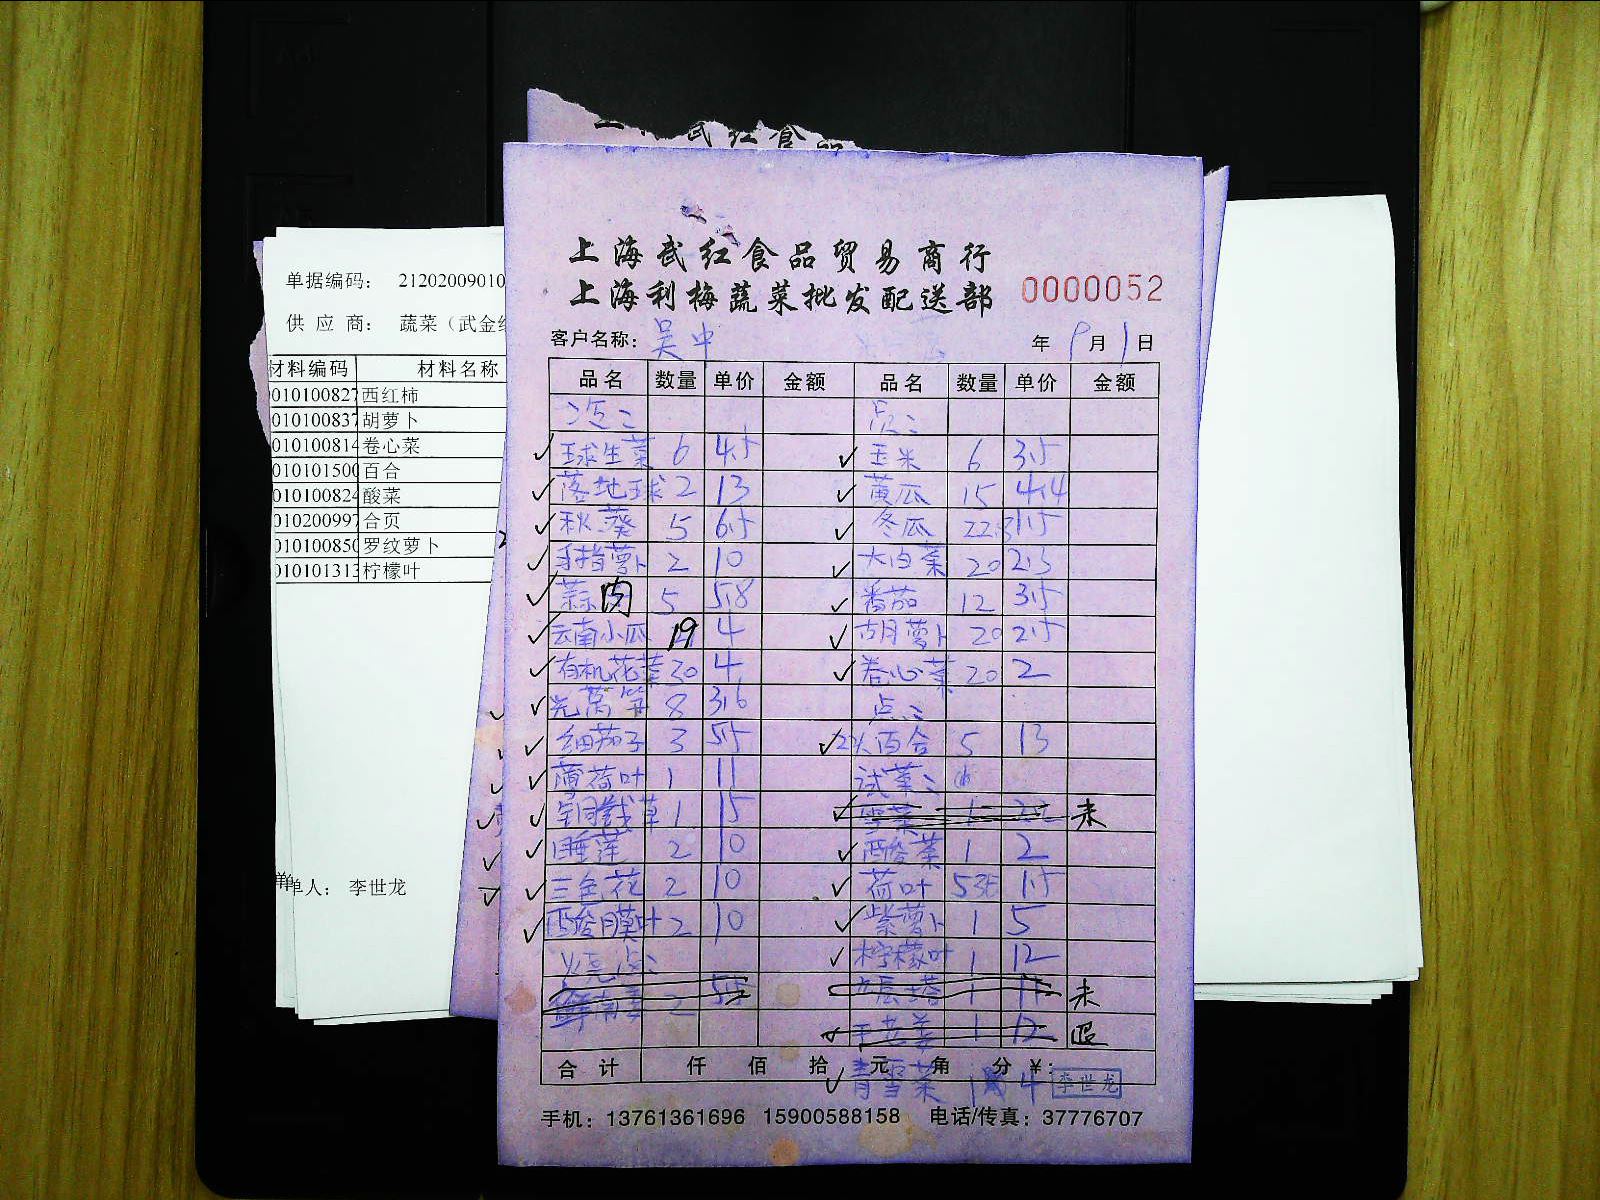 武红食品
上海武红食品贸易商行
上海利梅蔬菜批发配送部
0000052
客户名称：吴中
年 9月1日
品名 数量 单价 金额 品名 数量 单价 金额
球生菜 6 4.5 玉米 6 3.5
落地球 2 13 黄瓜 15 4.4
秋葵 5 6.5 冬瓜 22.3 1.5
手指萝卜 2 10 大白菜 20 2.3
蒜肉 5 5.8 番茄 12 3.5
云南小瓜 19 4 胡萝卜 20 2.5
有机花菜 30 4 卷心菜 20 2
光莴笋 8 3.6 点：
细茄子 3 5.5 2头百合 5 13
薄荷叶 1 11 试菜：
铜钱草 1 15 雪菜 1 未
睡莲 2 10 酸菜 1 2
三色花 2 10 荷叶 5张 1.5
酸膜叶 2 10 紫萝卜 1 5
烧点： 柠檬叶 1 12
2 5.5 九层塔 1 未
1 12 退
合计 仟 佰 拾 元 角 分 ¥：
青雪菜 4 李世龙
手机：13761361696 15900588158 电话/传真：37776707
单据编码： 21202009010
供应商： 蔬菜（武金红
材料编码 材料名称
010100827 西红柿
010100837 胡萝卜
010100814 卷心菜
010101500 百合
010100824 酸菜
010200997 合页
010100850 罗纹萝卜
010101313 柠檬叶
单人： 李世龙